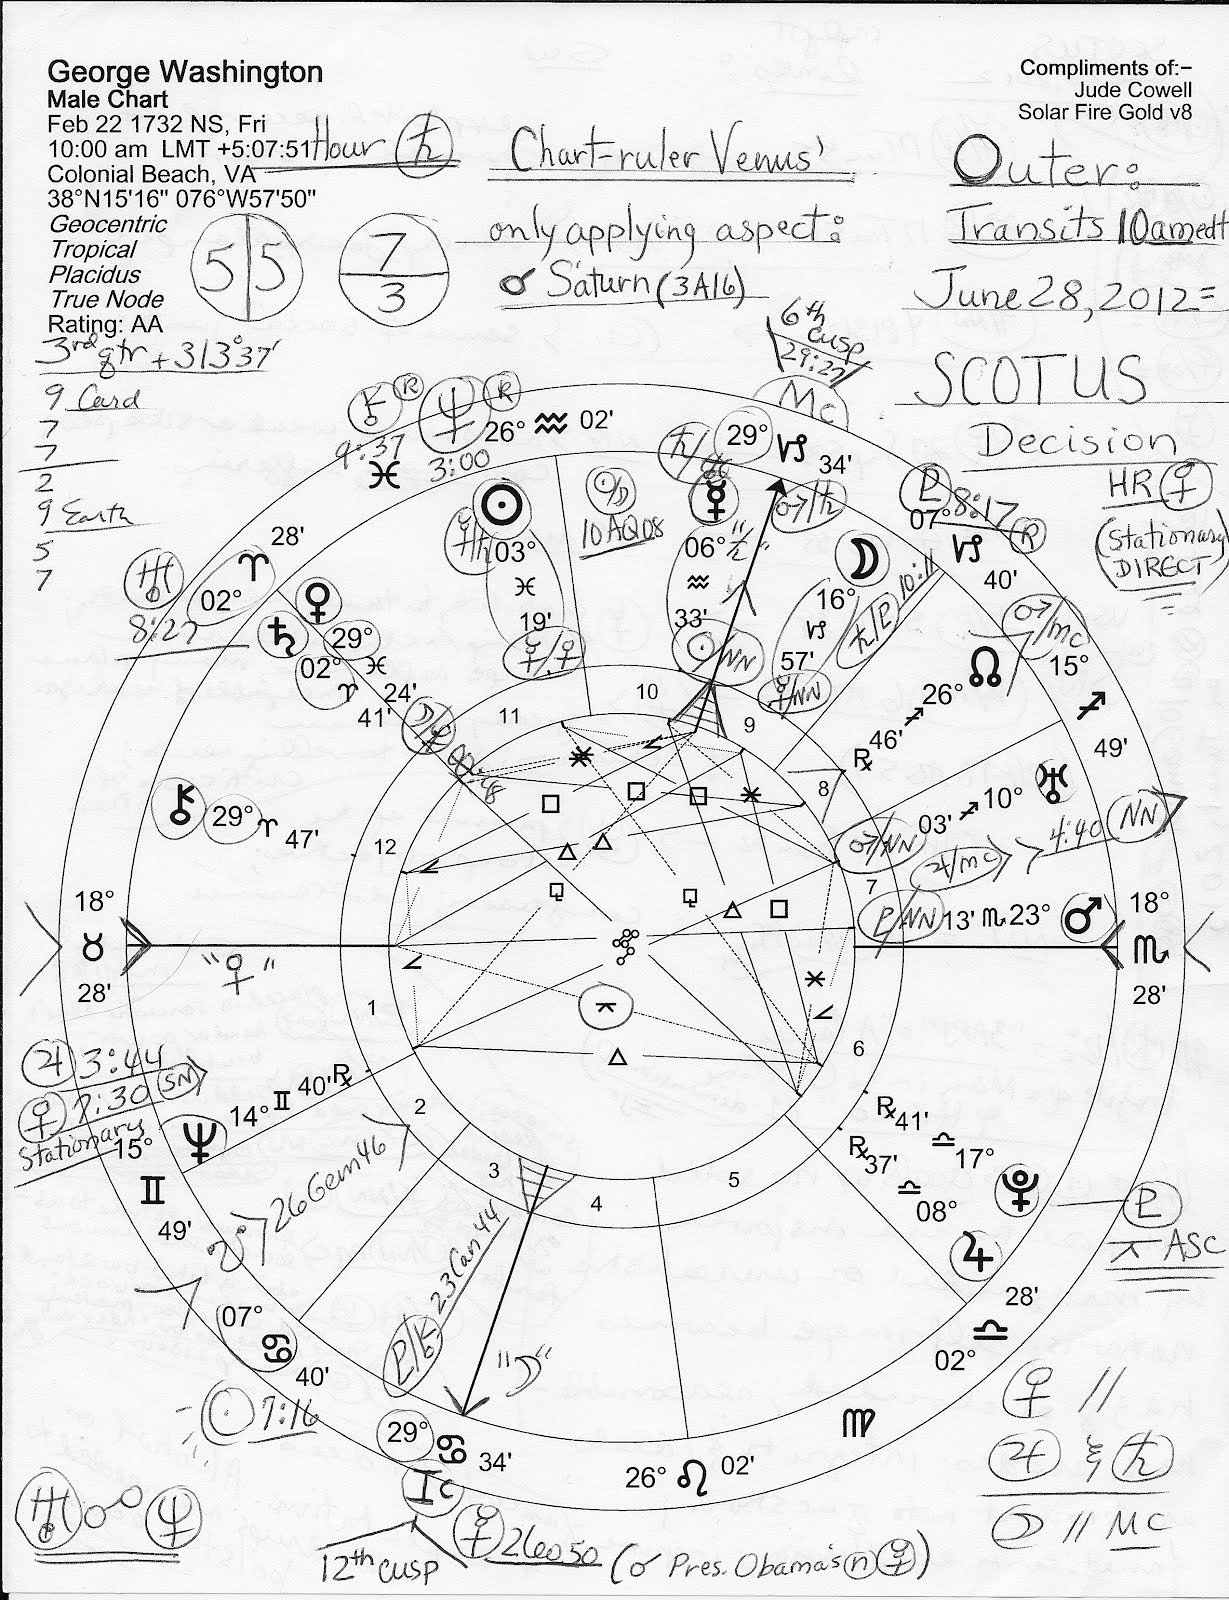 George Washington
Male Chart
Feb 22 1732 NS, Fri
10:00 am LMT +5:07:51
Colonial Beach, VA
38°N15'16" 076°W57'50"
Geocentric
Tropical
Placidus
True Node
Rating: AA
Compliments of:-
Jude Cowell
Solar Fire Gold v8
Hour ♄
5|5
7
3
Chart-ruler Venus'
only applying aspect:
☌ Saturn (3A16)
Outer:
Transits 10am edt
June 28, 2012 =
SCOTUS
Decision
HR ☿
(Stationary
DIRECT)
3rd qtr + 313°37'
9 Card
7
7
2
9 Earth
5
7
6th
cusp
29:27
Mc
⚷ ℞
9:37
♓
♆ ℞
3:00
26° ♒ 02'
♄/♅
29° ♑ 34'
♂/♄
♇ 8:17 ℞
07° ♑ 40'
28'
♈
02°
♅
8:27
♀ 29° ♓ 24'
♄ 02° ♈ 41'
☉ 03° ♓ 19'
☿/♄
☿/♀
☉/☽
10 AQ 08
☿ 06° ♒ 33'
"♄"
☉/NN
☽ 16° ♑ 57'
♄/♇ 10:11
☿/NN
♂/mc
☊ 26° ♐ 46' ℞
15° ♐ 49'
♅ 10° ♐ 03'
♂/NN
♃/mc
4:40 NN
♇/NN
13' ♏ 23° ♂
18° ♏ 28'
⚷ 29° ♈ 47'
18° ♉ 28'
"♀"
♃ 3:44
♀ 7:30 SN
Stationary
15° ♊ 49'
♆ 14° ♊ 40' ℞
☋ 26 Gem 46
10
11
9
8
12
7
1
6
2
3
4
5
℞ 41' ♎ 17° ♇
℞ 37' ♎ 08° ♃
♇
⚻ ASC
28' ♎ 02°
♍
07° ♋ 40'
☉ 7:16
♇/⚷ 23 Can 44
"☽"
29° ♋ 34'
Ic
26° ♌ 02'
♀ //
♃ & ♄
☽ // MC
♅ ☍ ♆
12th cusp
☿ 26♌50 (☌ Pres. Obama's n ☿)